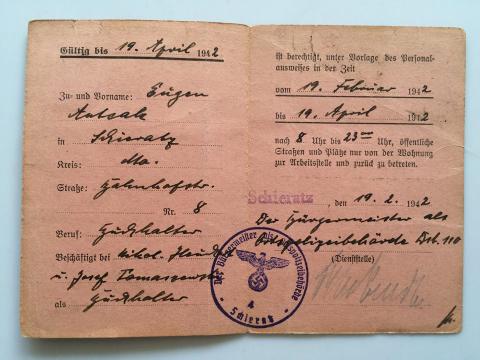 Gültig bis 19. April 1942
Zu- und Vorname: Eugen
in Schieratz
Kreis: dto.
Straße: Bahnhofstr.
Nr. 8
Beruf: Buchhalter
Beschäftigt bei Nikol.
u. Josef Tomaszewski
als Buchhalter
ist berechtigt, unter Vorlage des Personal-
ausweises in der Zeit
vom 19. Februar 1942
bis 19. April 1942
nach 8 Uhr bis 23 Uhr, öffentliche
Straßen und Plätze nur von der Wohnung
zur Arbeitsstelle und zurück zu betreten.
Schieratz, den 19.2. 1942
Der Bürgermeister als
Ortspolizeibehörde
(Dienststelle)
Der Bürgermeister als Ortspolizeibehörde
4
Schieratz